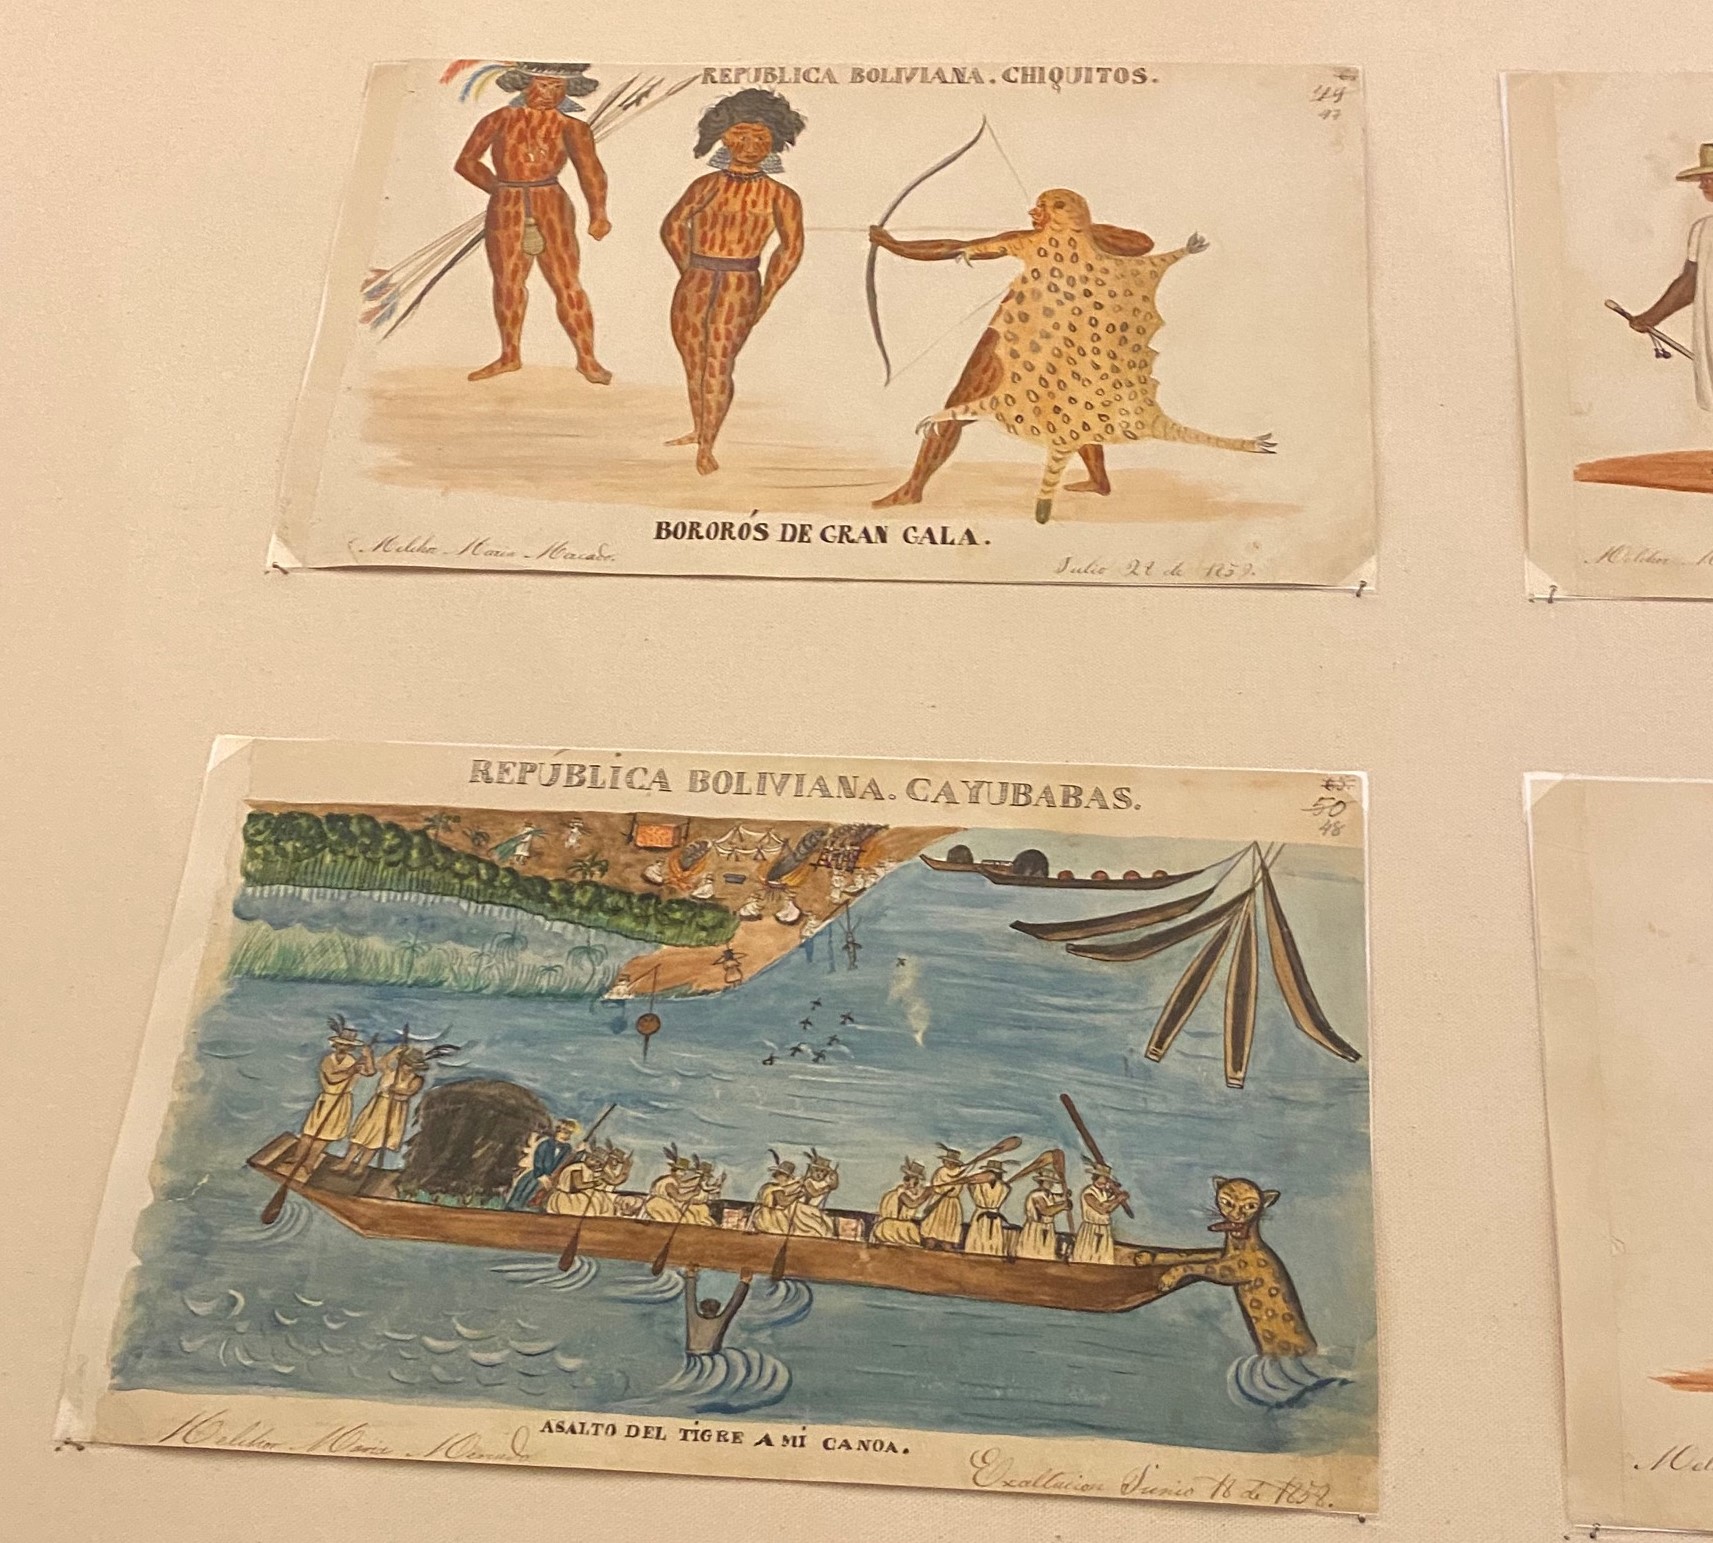 REPUBLICA BOLIVIANA. CHIQUITOS.
49
47
BOROROŚ DE GRAN GALA.
Melchor Maria Mercado.
Julio 22 de 1859.
REPÚBLICA BOLIVIANA. CAYUBABAS.
65
50
48
ASALTO DEL TÍGRE A MÍ CANOA.
Melchor Maria Mercado
Exaltacion Junio 18 de 1859.
Melchor
Mel